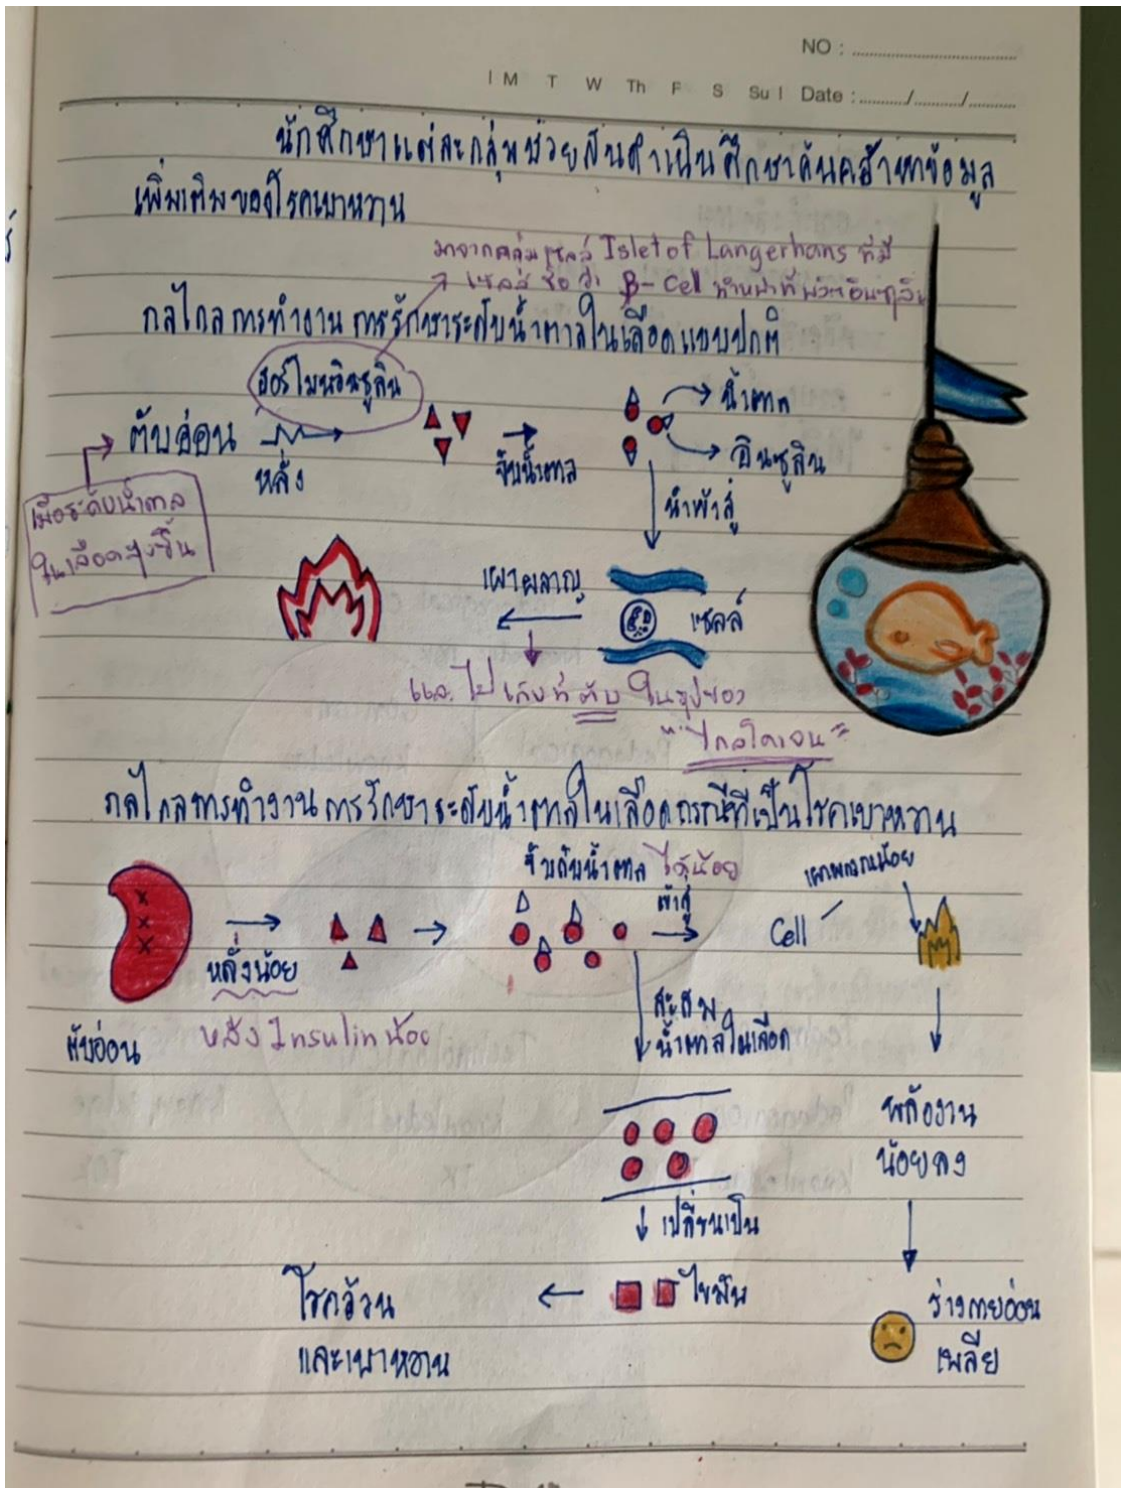 NO :
I M T W Th F S Su I Date : / /
นักศึกษาแต่ละกลุ่มช่วยกันดำเนินศึกษาค้นคว้าหาข้อมูล
เพิ่มเติมของโรคเบาหวาน
มาจากกลุ่มเซลล์ Islet of Langerhans ที่มี
เซลล์ ชื่อว่า β-Cell ทำหน้าที่ผลิตอินซูลิน
กลไกลการทำงาน การรักษาระดับน้ำตาลในเลือดแบบปกติ
ฮอร์โมนอินซูลิน
ตับอ่อน
หลั่ง
จับน้ำตาล
น้ำตาล
อินซูลิน
เมื่อระดับน้ำตาล
ในเลือดสูงขึ้น
นำเข้าสู่
เผาผลาญ
เซลล์
และ ไปเก็บที่ ตับ ในรูปของ
"ไกลโคเจน"
กลไกลการทำงาน การรักษาระดับน้ำตาลในเลือดกรณีที่เป็นโรคเบาหวาน
จับกับน้ำตาล ได้น้อย
เผาผลาญน้อย
เข้าสู่
Cell
หลั่งน้อย
ตับอ่อน
หลั่ง Insulin น้อย
สะสม
น้ำตาลในเลือด
พลังงาน
น้อยลง
เปลี่ยนเป็น
ไขมัน
โรคอ้วน
และเบาหวาน
ร่างกายอ่อน
เพลีย